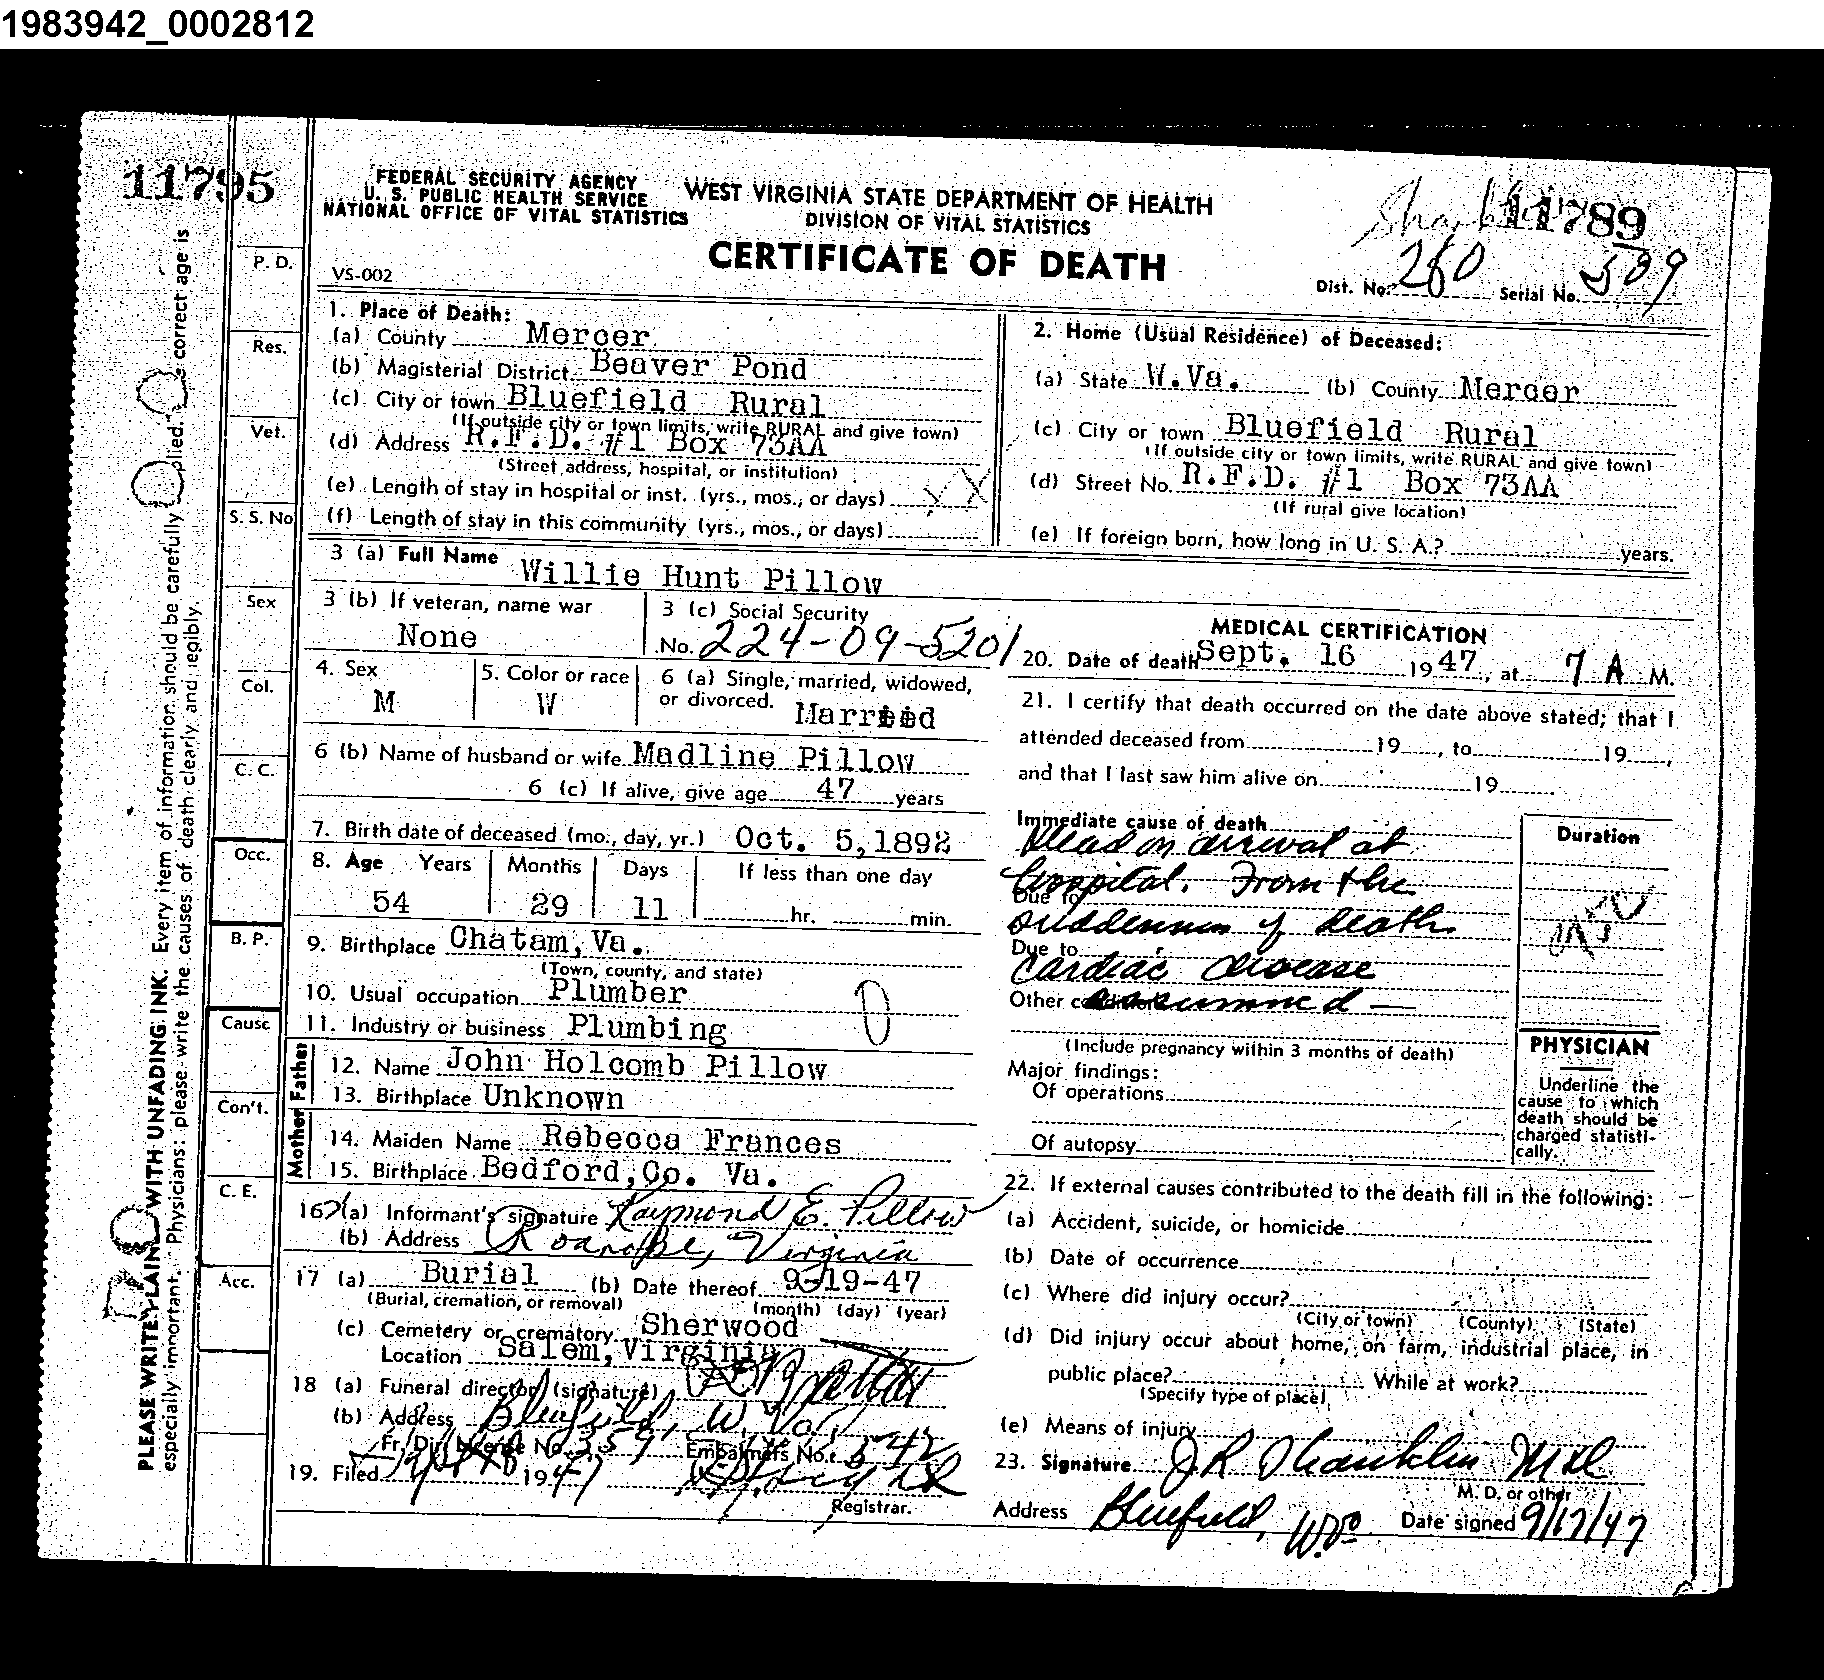 1983942_0002812
11795
FEDERAL SECURITY AGENCY
U. S. PUBLIC HEALTH SERVICE
NATIONAL OFFICE OF VITAL STATISTICS
WEST VIRGINIA STATE DEPARTMENT OF HEALTH
DIVISION OF VITAL STATISTICS
CERTIFICATE OF DEATH
VS-002
11789
Dist. No. 280 Serial No. 509
1. Place of Death:
(a) County Mercer
(b) Magisterial District Beaver Pond
(c) City or town Bluefield Rural
(If outside city or town limits, write RURAL and give town)
(d) Address R.F.D. #1 Box 73AA
(Street address, hospital, or institution)
(e) Length of stay in hospital or inst. (yrs., mos., or days) X X
(f) Length of stay in this community (yrs., mos., or days)
2. Home (Usual Residence) of Deceased:
(a) State W.Va. (b) County Mercer
(c) City or town Bluefield Rural
(If outside city or town limits, write RURAL and give town)
(d) Street No. R.F.D. #1 Box 73AA
(If rural give location)
(e) If foreign born, how long in U. S. A.? years.
3 (a) Full Name Willie Hunt Pillow
3 (b) If veteran, name war
None
3 (c) Social Security
No. 224-09-5201
4. Sex
M
5. Color or race
W
6 (a) Single, married, widowed,
or divorced. Married
6 (b) Name of husband or wife Madline Pillow
6 (c) If alive, give age 47 years
7. Birth date of deceased (mo., day, yr.) Oct. 5,1892
8. Age Years Months Days If less than one day
54 29 11 hr. min.
9. Birthplace Chatam, Va.
(Town, county, and state)
10. Usual occupation Plumber
11. Industry or business Plumbing
0
Father
12. Name John Holcomb Pillow
13. Birthplace Unknown
Mother
14. Maiden Name Rebecca Frances
15. Birthplace Bedford, Co. Va.
16 (a) Informant's signature Raymond E. Pillow
(b) Address Roanoke, Virginia
17 (a) Burial (b) Date thereof 9-19-47
(Burial, cremation, or removal) (month) (day) (year)
(c) Cemetery or crematory Sherwood
Location Salem, Virginia
18 (a) Funeral director (signature)
(b) Address Bluefield, W. Va.
Fr. Dir. License No. 359 Embalmers No. 542
19. Filed 1947
Registrar.
MEDICAL CERTIFICATION
20. Date of death Sept. 16 1947, at 7 A M.
21. I certify that death occurred on the date above stated; that I
attended deceased from 19 , to 19 ,
and that I last saw him alive on 19
Immediate cause of death
Dead on arrival at
hospital. From the
Due to
suddenness of death
Due to
cardiac disease
Other conditions assumed —
(Include pregnancy within 3 months of death)
Major findings:
Of operations
Of autopsy
Duration
PHYSICIAN
Underline the
cause to which
death should be
charged statisti-
cally.
22. If external causes contributed to the death fill in the following:
(a) Accident, suicide, or homicide
(b) Date of occurrence
(c) Where did injury occur?
(City or town) (County) (State)
(d) Did injury occur about home, on farm, industrial place, in
public place? While at work?
(Specify type of place)
(e) Means of injury
23. Signature J R Shanklin M.D.
M. D. or other
Address Bluefield, W.Va Date signed 9/17/47
P. D.
Res.
Vet.
S. S. No
Sex
Col.
C. C.
Occ.
B. P.
Cause
Con't.
C. E.
Acc.
PLEASE WRITE PLAINLY WITH UNFADING INK. Every item of information should be carefully supplied. correct age is
especially important. Physicians: please write the causes of death clearly and legibly.